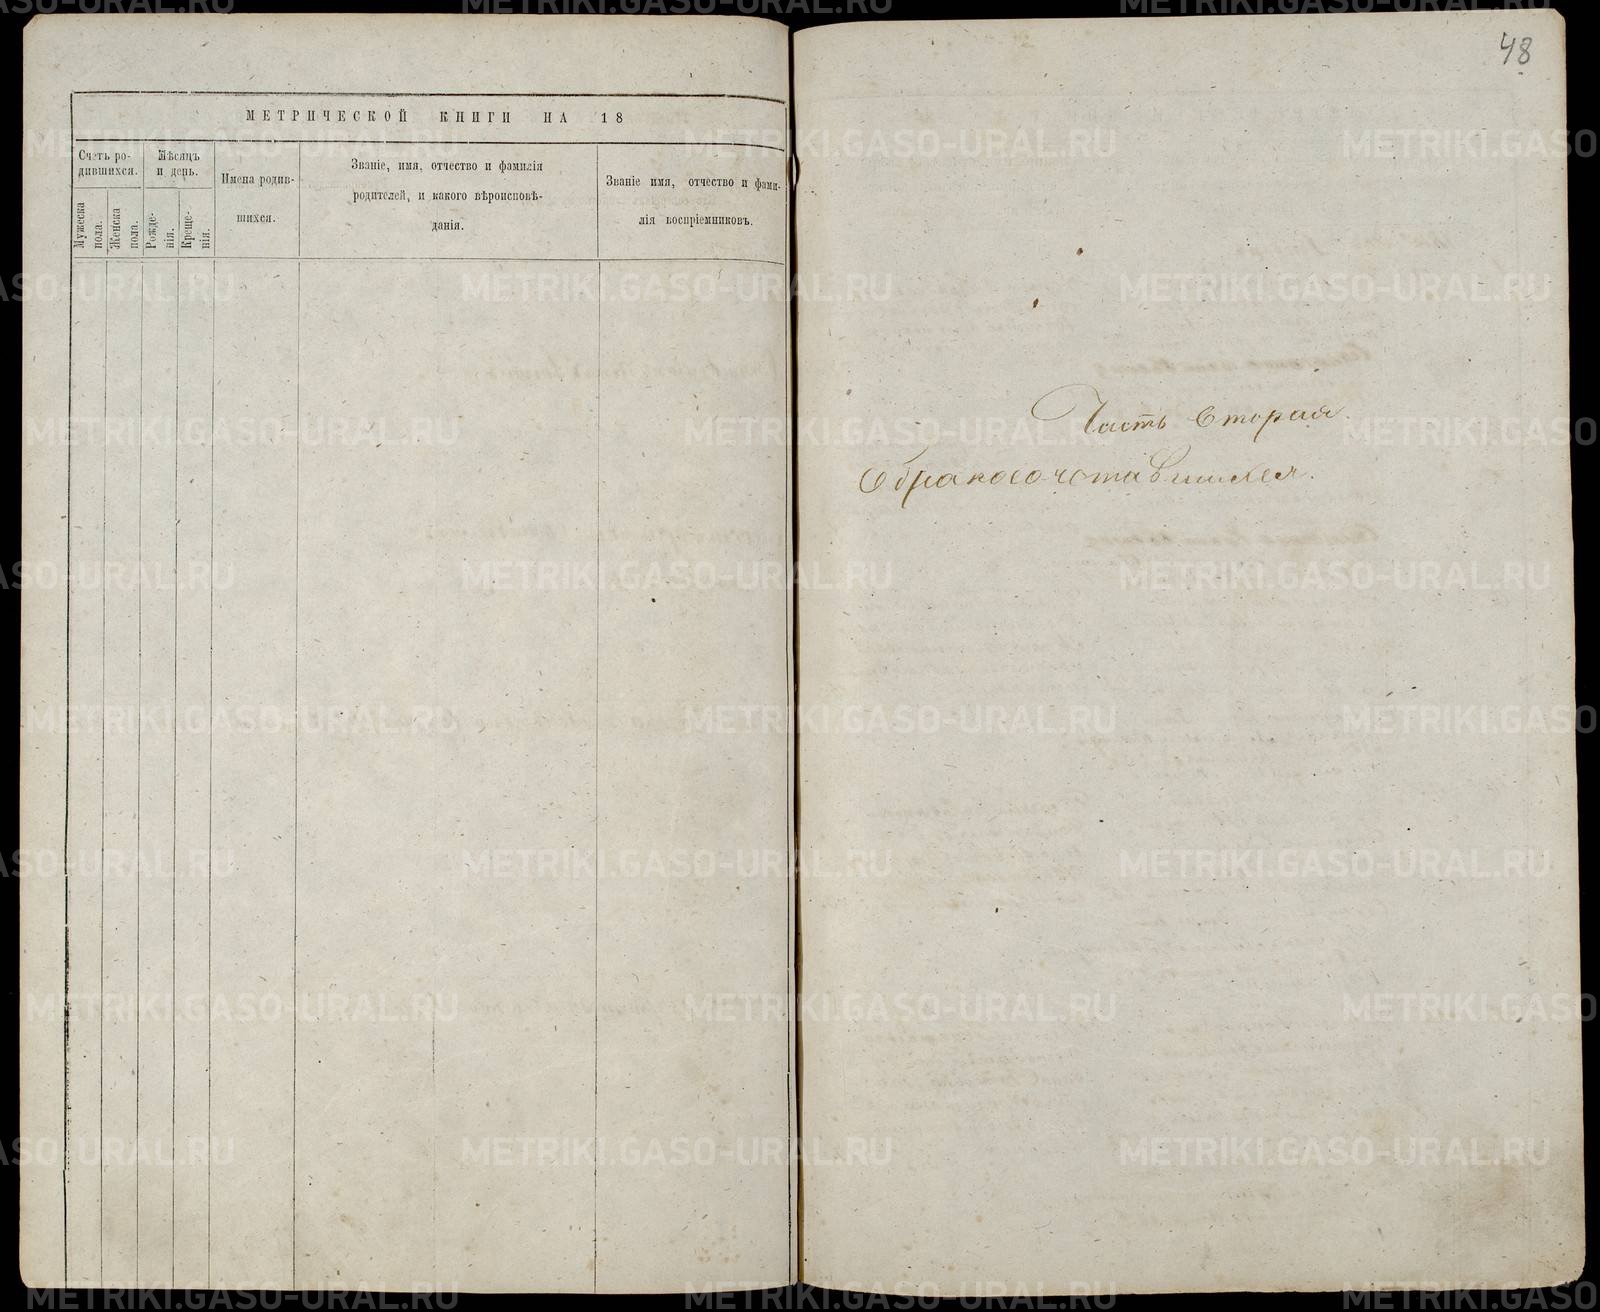 МЕТРИЧЕСКОЙ КНИГИ НА 18
Счетъ ро-
дившихся.
Мѣсяцъ
и день.
Имена родив-
шихся.
Званіе, имя, отчество и фамилія
родителей, и какого вѣроисповѣ-
данія.
Званіе имя, отчество и фами-
лія воспріемниковъ.
Мужеска
пола.
Женска
пола.
Рожде-
нія.
Креще-
нія.
48
Часть вторая.
О бракосочетавшихся.
METRIKI.GASO-URAL.RU